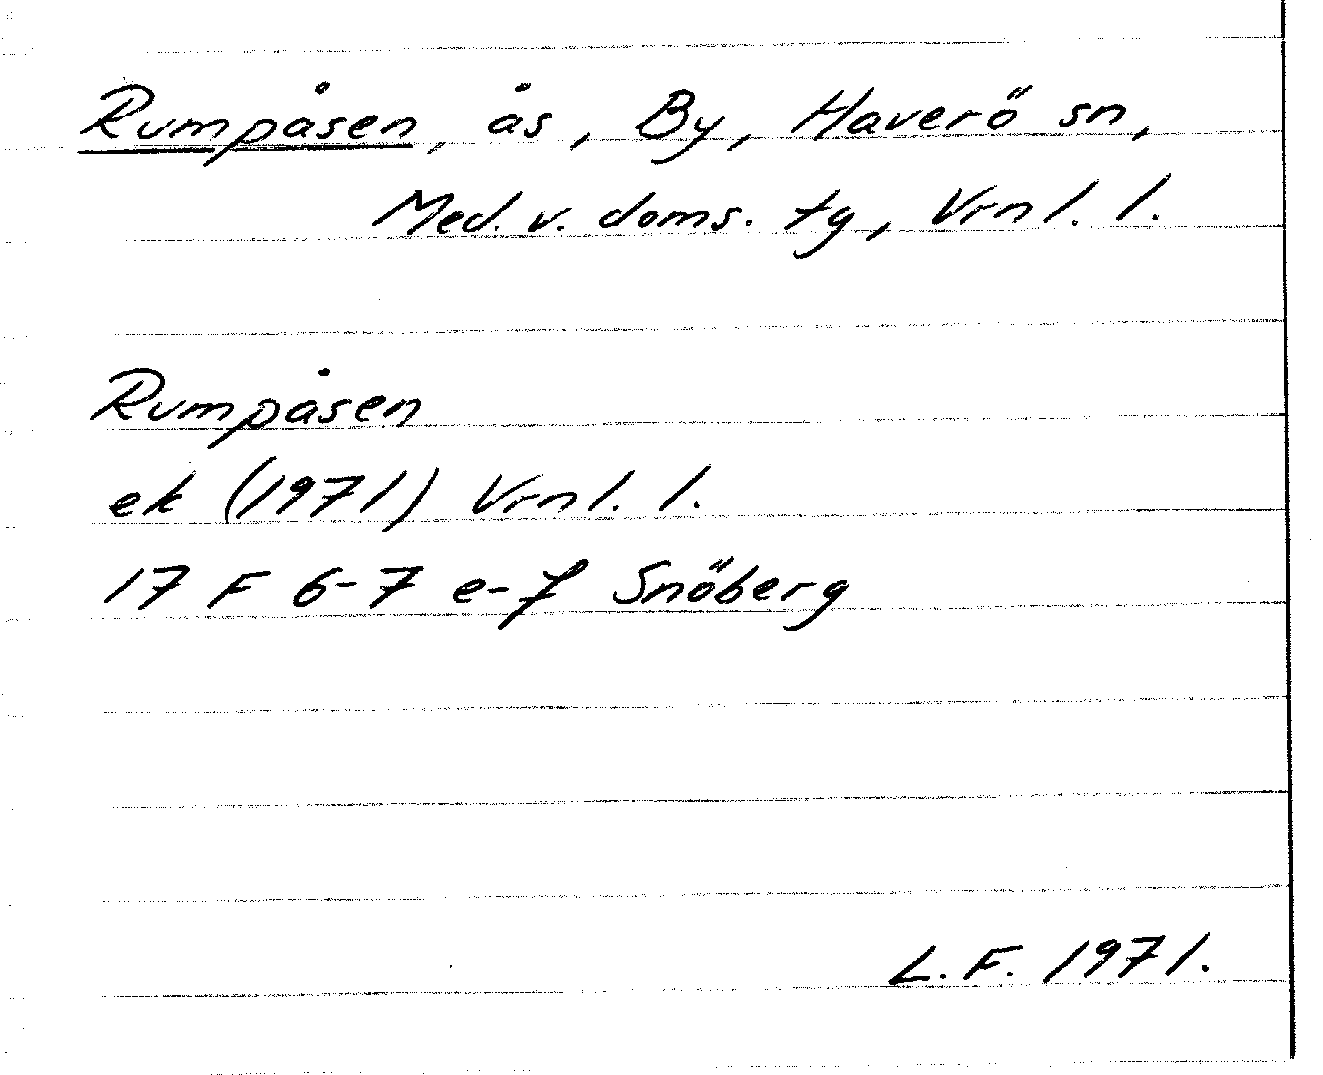 Rumpåsen, ås, By, Haverö sn,
Med. v. doms. tg, Vrnl. l.
Rumpåsen
ek (1971) Vrnl. l.
17 F 6-7 e-f Snöberg
L. F. 1971.